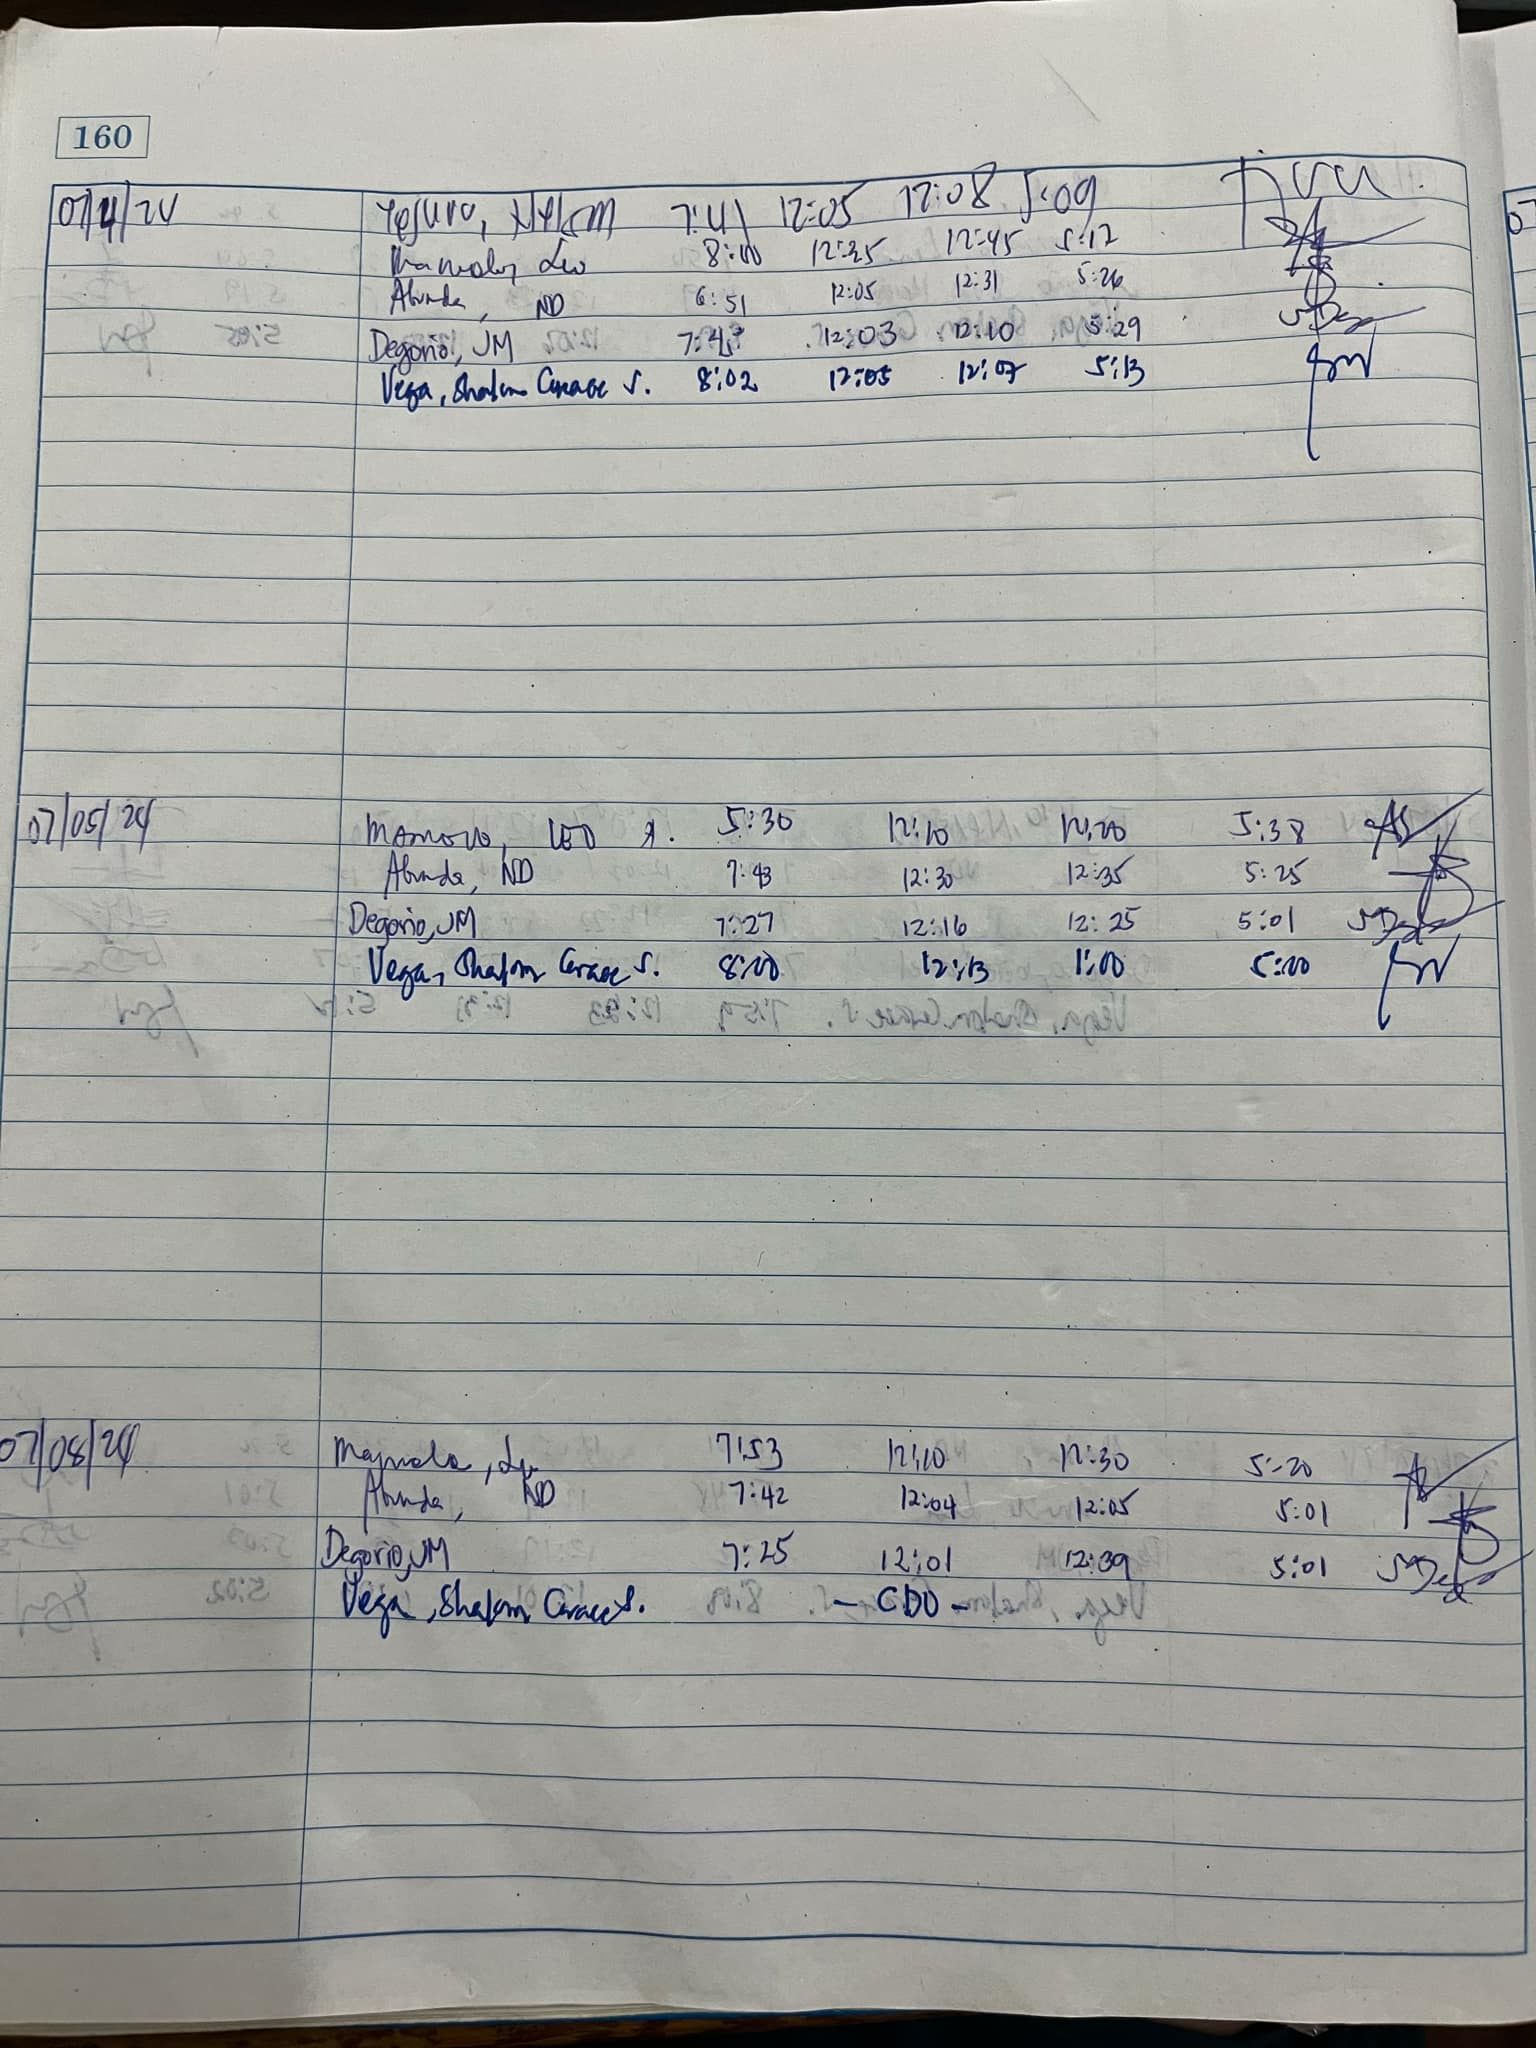 160
07/4/24 7:41 12:05 12:08 5:09
Leo 8:00 12:35 12:45 5:12
Abunda, ND 6:51 12:05 12:31 5:26
Degorio, JM 12:03 12:10 5:29
Vega, Shalom Cerace S. 8:02 12:05 12:07 5:13
07/05/24 LEO A. 5:30 12:10 12:20 5:38
Abunda, ND 7:43 12:30 12:35 5:25
Degorio, JM 7:27 12:16 12:25 5:01
Vega, Shalom Cerace S. 8:00 12:13 1:00 5:00
07/08/24 7:53 12:10 12:30 5:20
Abunda, ND 7:42 12:04 12:05 5:01
Degorio, JM 7:25 12:01 12:09 5:01
Vega, Shalom Cerace S. - CDO -